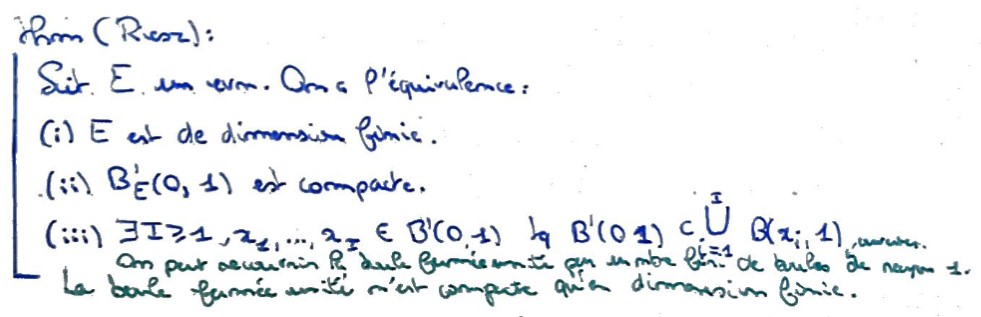 thm (Riesz):
Soit E un evn. On a l'équivalence:
(i) E est de dimension finie.
(ii) B'_E(0, 1) est compacte.
(iii) ∃I≥1, x_1, ..., x_I ∈ B'(0,1) tq B'(0 1) ⊂ ⋃_{i=1}^{I} B(x_i, 1), ouvertes.
On peut recouvrir la boule fermée unité par un nbre fini de boules de rayon 1.
La boule fermée unité n'est compacte qu'en dimension finie.